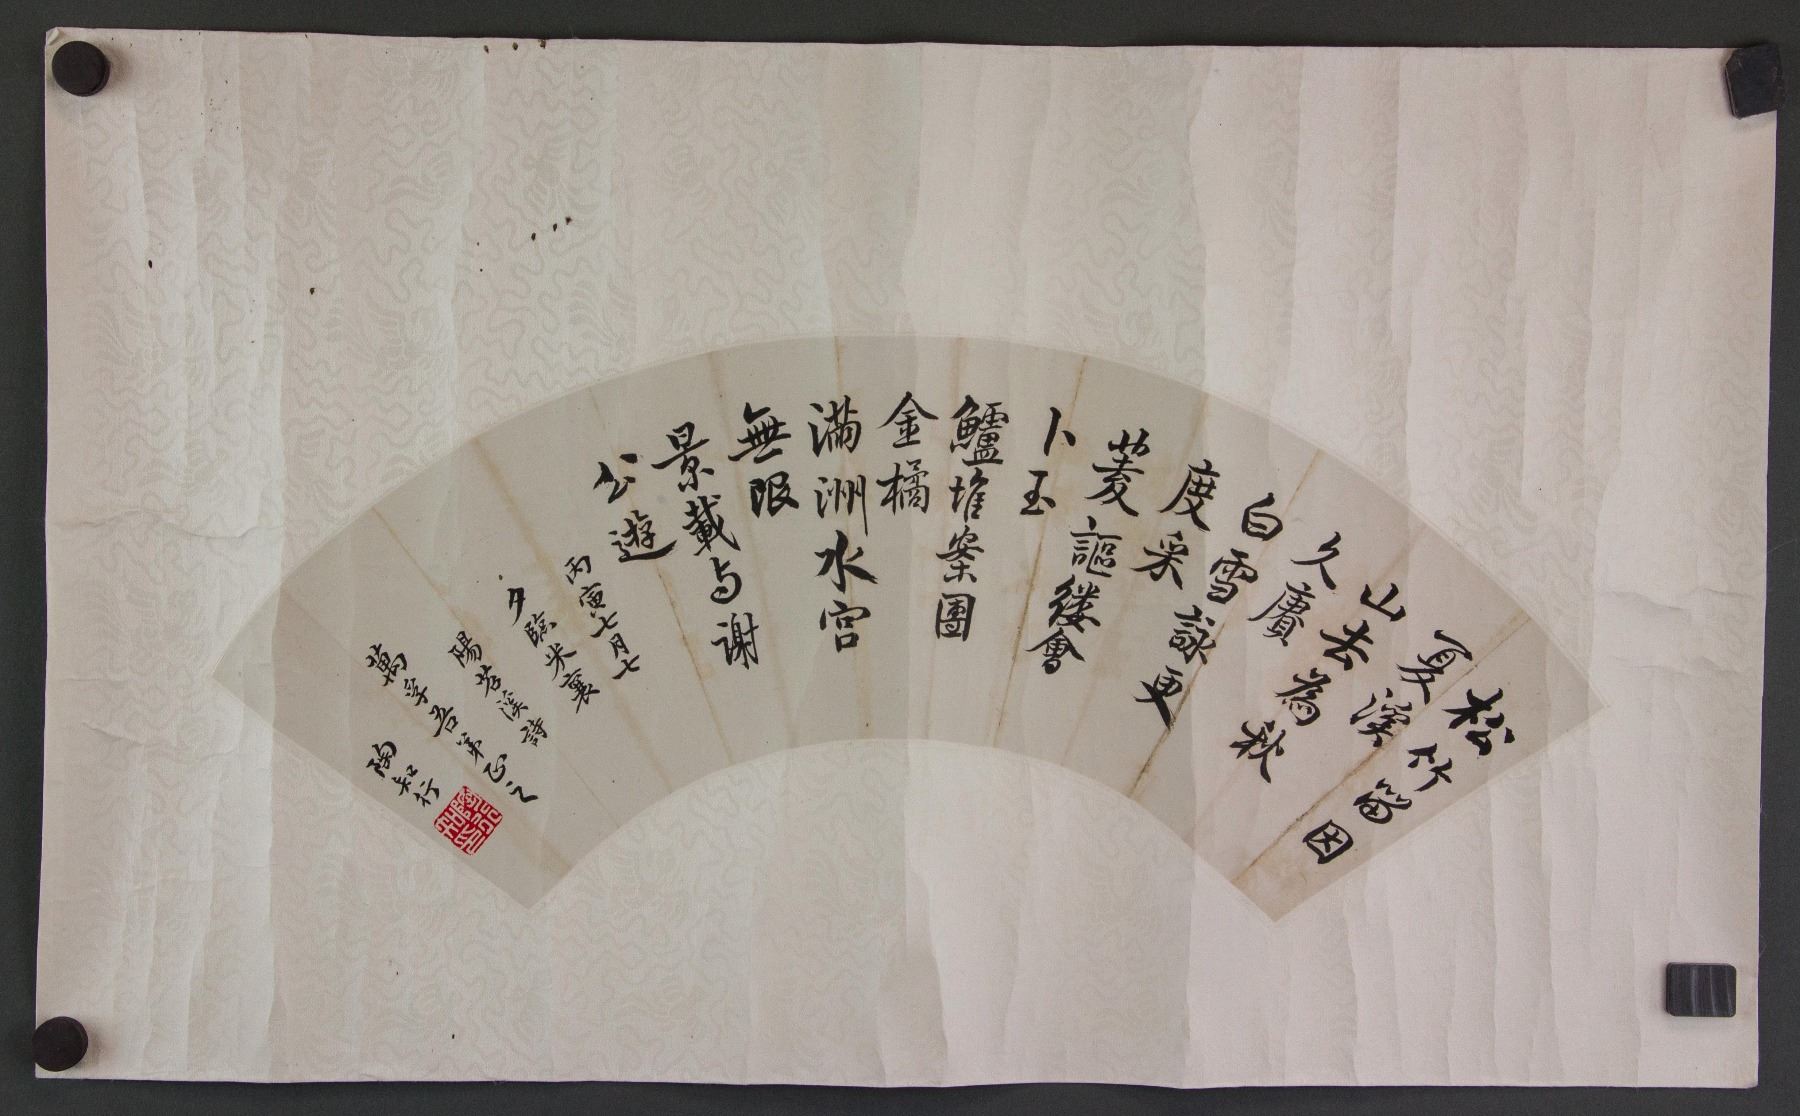 松竹留因
夏溪
山去為秋
久賡
白雪詠更
度采
菱謳縷會
卜玉
鱸堆案團
金橘
滿洲水宮
無限
景載与謝
公遊
丙寅七月七
夕臨米襄
陽苕溪詩
萬孚吾弟正之
陶知行